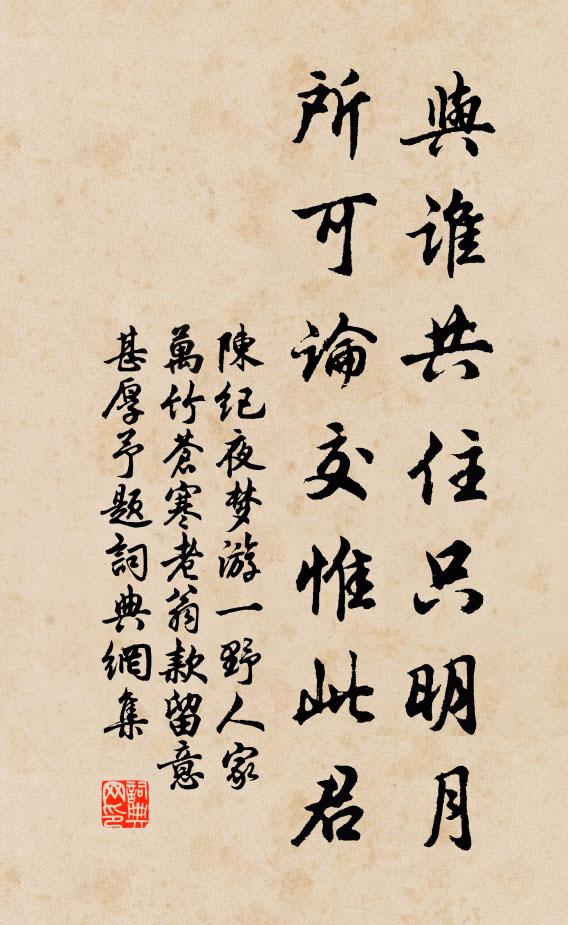 與誰共住只明月
所可論交惟此君
陳紀夜梦游一野人家
萬竹蒼寒老翁款留意
甚厚予題詞典網集
詞典
网印